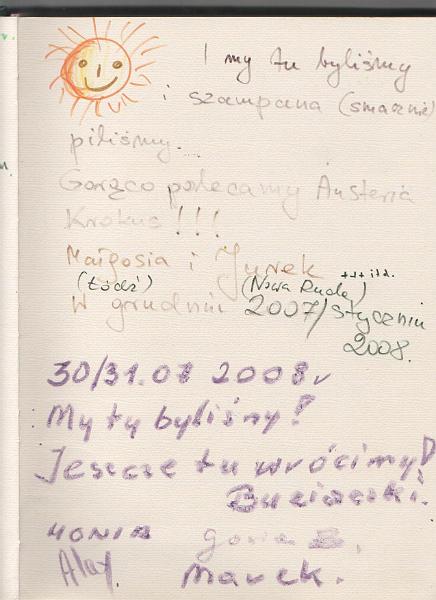 I my tu byliśmy
i szampana (smacznie)
piliśmy...
Gorąco polecamy Austeria
Krokus!!!
Małgosia i Jurek
(Łódź) (Nowa Ruda) +++ itd.
W grudniu 2007/styczniu
2008.
30/31.07 2008r
My tu byliśmy!
Jeszcze tu wrócimy!
Buziaczki.
MONIA Gosia
Alex. Marek.